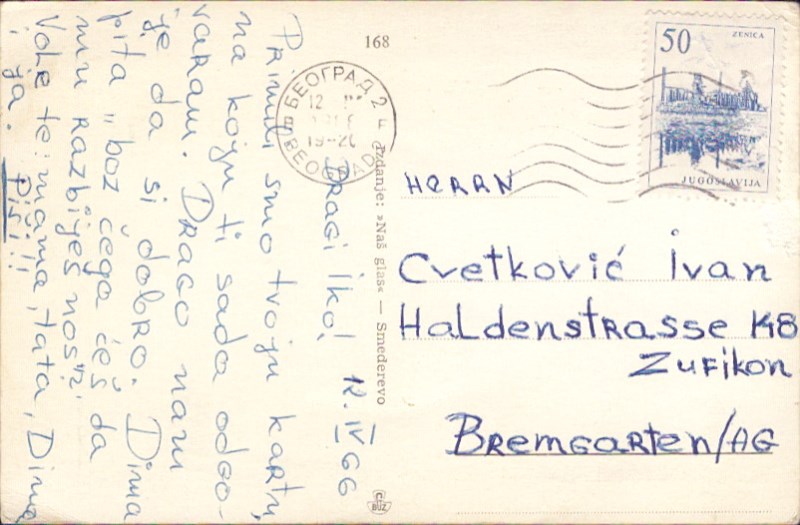 168
50
ZENICA
JUGOSLAVIJA
БЕОГРАД 2
BEOGRAD
19-20
Izdanje: »Naš glas« — Smederevo
Dragi Iko! 12. IV 66
Primili smo tvoju kartu,
na koju ti sada odgo-
varam. Drago nam
je da si dobro. Dima
pita „boz čega ćeš da
mu razbiješ nos“?
Vole te: mama, tata, Dima
i ja. Piši!!
HERRN
Cvetković Ivan
Haldenstrasse 148
Zufikon
Bremgarten/AG